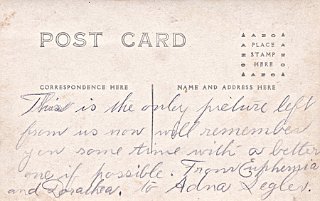 POST CARD
AZO
PLACE
STAMP
HERE
AZO
CORRESPONDENCE HERE
NAME AND ADDRESS HERE
This is the only picture left
from us now will remember
you some time with a better
one if possible. From Euphemia
and Dorathea. To Adna Segler.